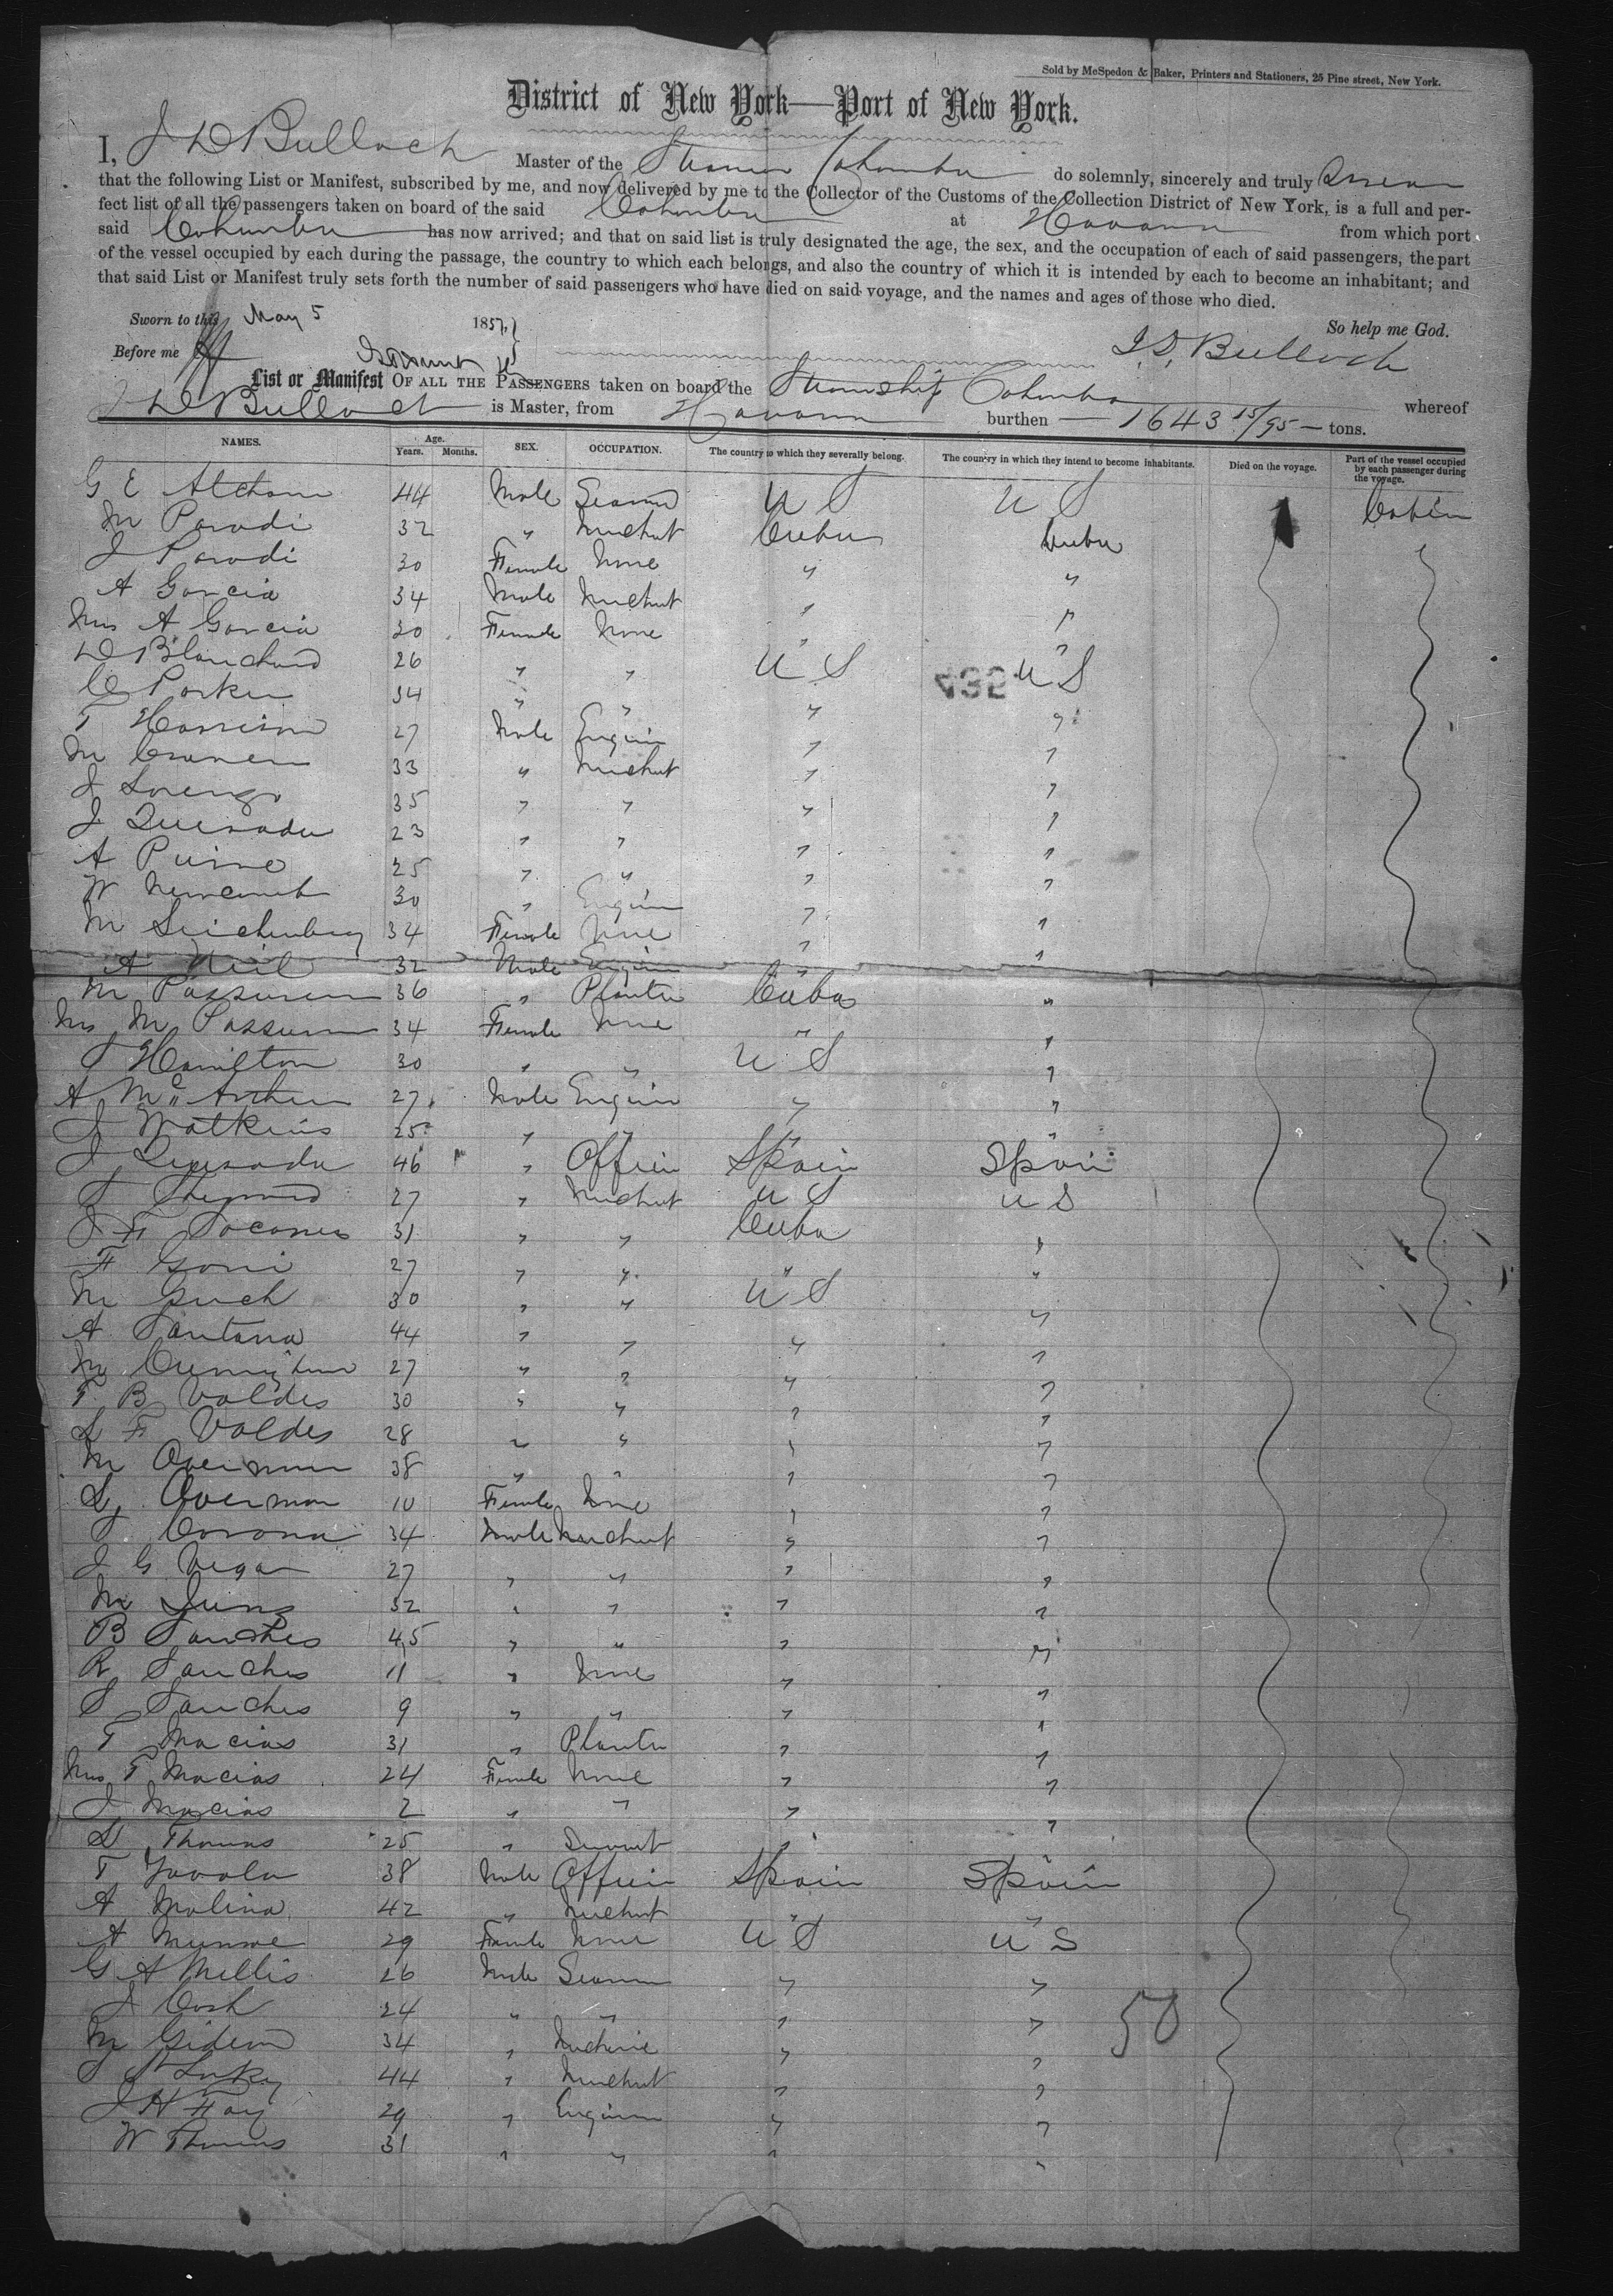 Sold by McSpedon & Baker, Printers and Stationers, 25 Pine street, New York.
District of New York—Port of New York.
I, J D Bulloch Master of the Steamer Columbia do solemnly, sincerely and truly Swear
that the following List or Manifest, subscribed by me, and now delivered by me to the Collector of the Customs of the Collection District of New York, is a full and per-
fect list of all the passengers taken on board of the said Columbia at Havana from which port
said Columbia has now arrived; and that on said list is truly designated the age, the sex, and the occupation of each of said passengers, the part
of the vessel occupied by each during the passage, the country to which each belongs, and also the country of which it is intended by each to become an inhabitant; and
that said List or Manifest truly sets forth the number of said passengers who have died on said voyage, and the names and ages of those who died.
Sworn to this May 5 1857, So help me God.
Before me J. D. Bulloch
List or Manifest OF ALL THE PASSENGERS taken on board the Steamship Columbia whereof
J D Bulloch is Master, from Havana burthen 1643 15/95 tons.
NAMES. Age. Years. Months. SEX. OCCUPATION. The country to which they severally belong. The country in which they intend to become inhabitants. Died on the voyage. Part of the vessel occupied by each passenger during the voyage.
G E 44 Male Seaman U S U S Cabin
M Parodi 32 " Mechut Cuba Cuba
J Parodi 30 Female None " "
A Garcia 34 Male Mechut " "
Mrs A Garcia 30 Female None " "
D Blanchard 26 " " U S U S
432
C Parker 34 " " " "
T Harrison 27 Male Engin " "
M Craven 33 " Mechut " "
J Lorenzo 35 " " " "
J Quesada 23 " " " "
A 25 " " " "
W Newcomb 30 " Engin " "
M Leichenberg 34 Female None " "
A Neil 32 Male Engin " "
M 36 " Planter Cuba "
Mrs M 34 Female None " "
J Hamilton 30 " " U S "
A McArthur 27 Male Engin " "
J Watkins 25 " " " "
J Quesada 46 " Officer Spain Spain
T 27 " Mechut U S U S
J F 31 " " Cuba "
F Goni 27 " " " "
M 30 " " U S "
A Santana 44 " " " "
M Cunningham 27 " " " "
T B Valdes 30 " " " "
L F Valdes 28 " " " "
M Overman 38 " " " "
L Overman 10 Female None " "
J Corona 34 Male Mechut " "
J G Vega 27 " " " "
M 32 " " " "
B Sanches 45 " " " "
R Sanches 11 " None " "
S Sanches 9 " " " "
T Macias 31 " Planter " "
Mrs T Macias 24 Female None " "
J Macias 2 " " " "
L Thomas 25 " Servant " "
T Zavala 38 Male Officer Spain Spain
A Molina 42 " Mechut " "
A Munroe 29 Female None U S U S
G A Mellis 26 Male Seaman " "
J Cash 24 " " " "
M Gideon 34 " Mechanic " "
J 44 " Mechut " "
J H Fay 29 " Engineer " "
W Thomas 31 " " " "
50